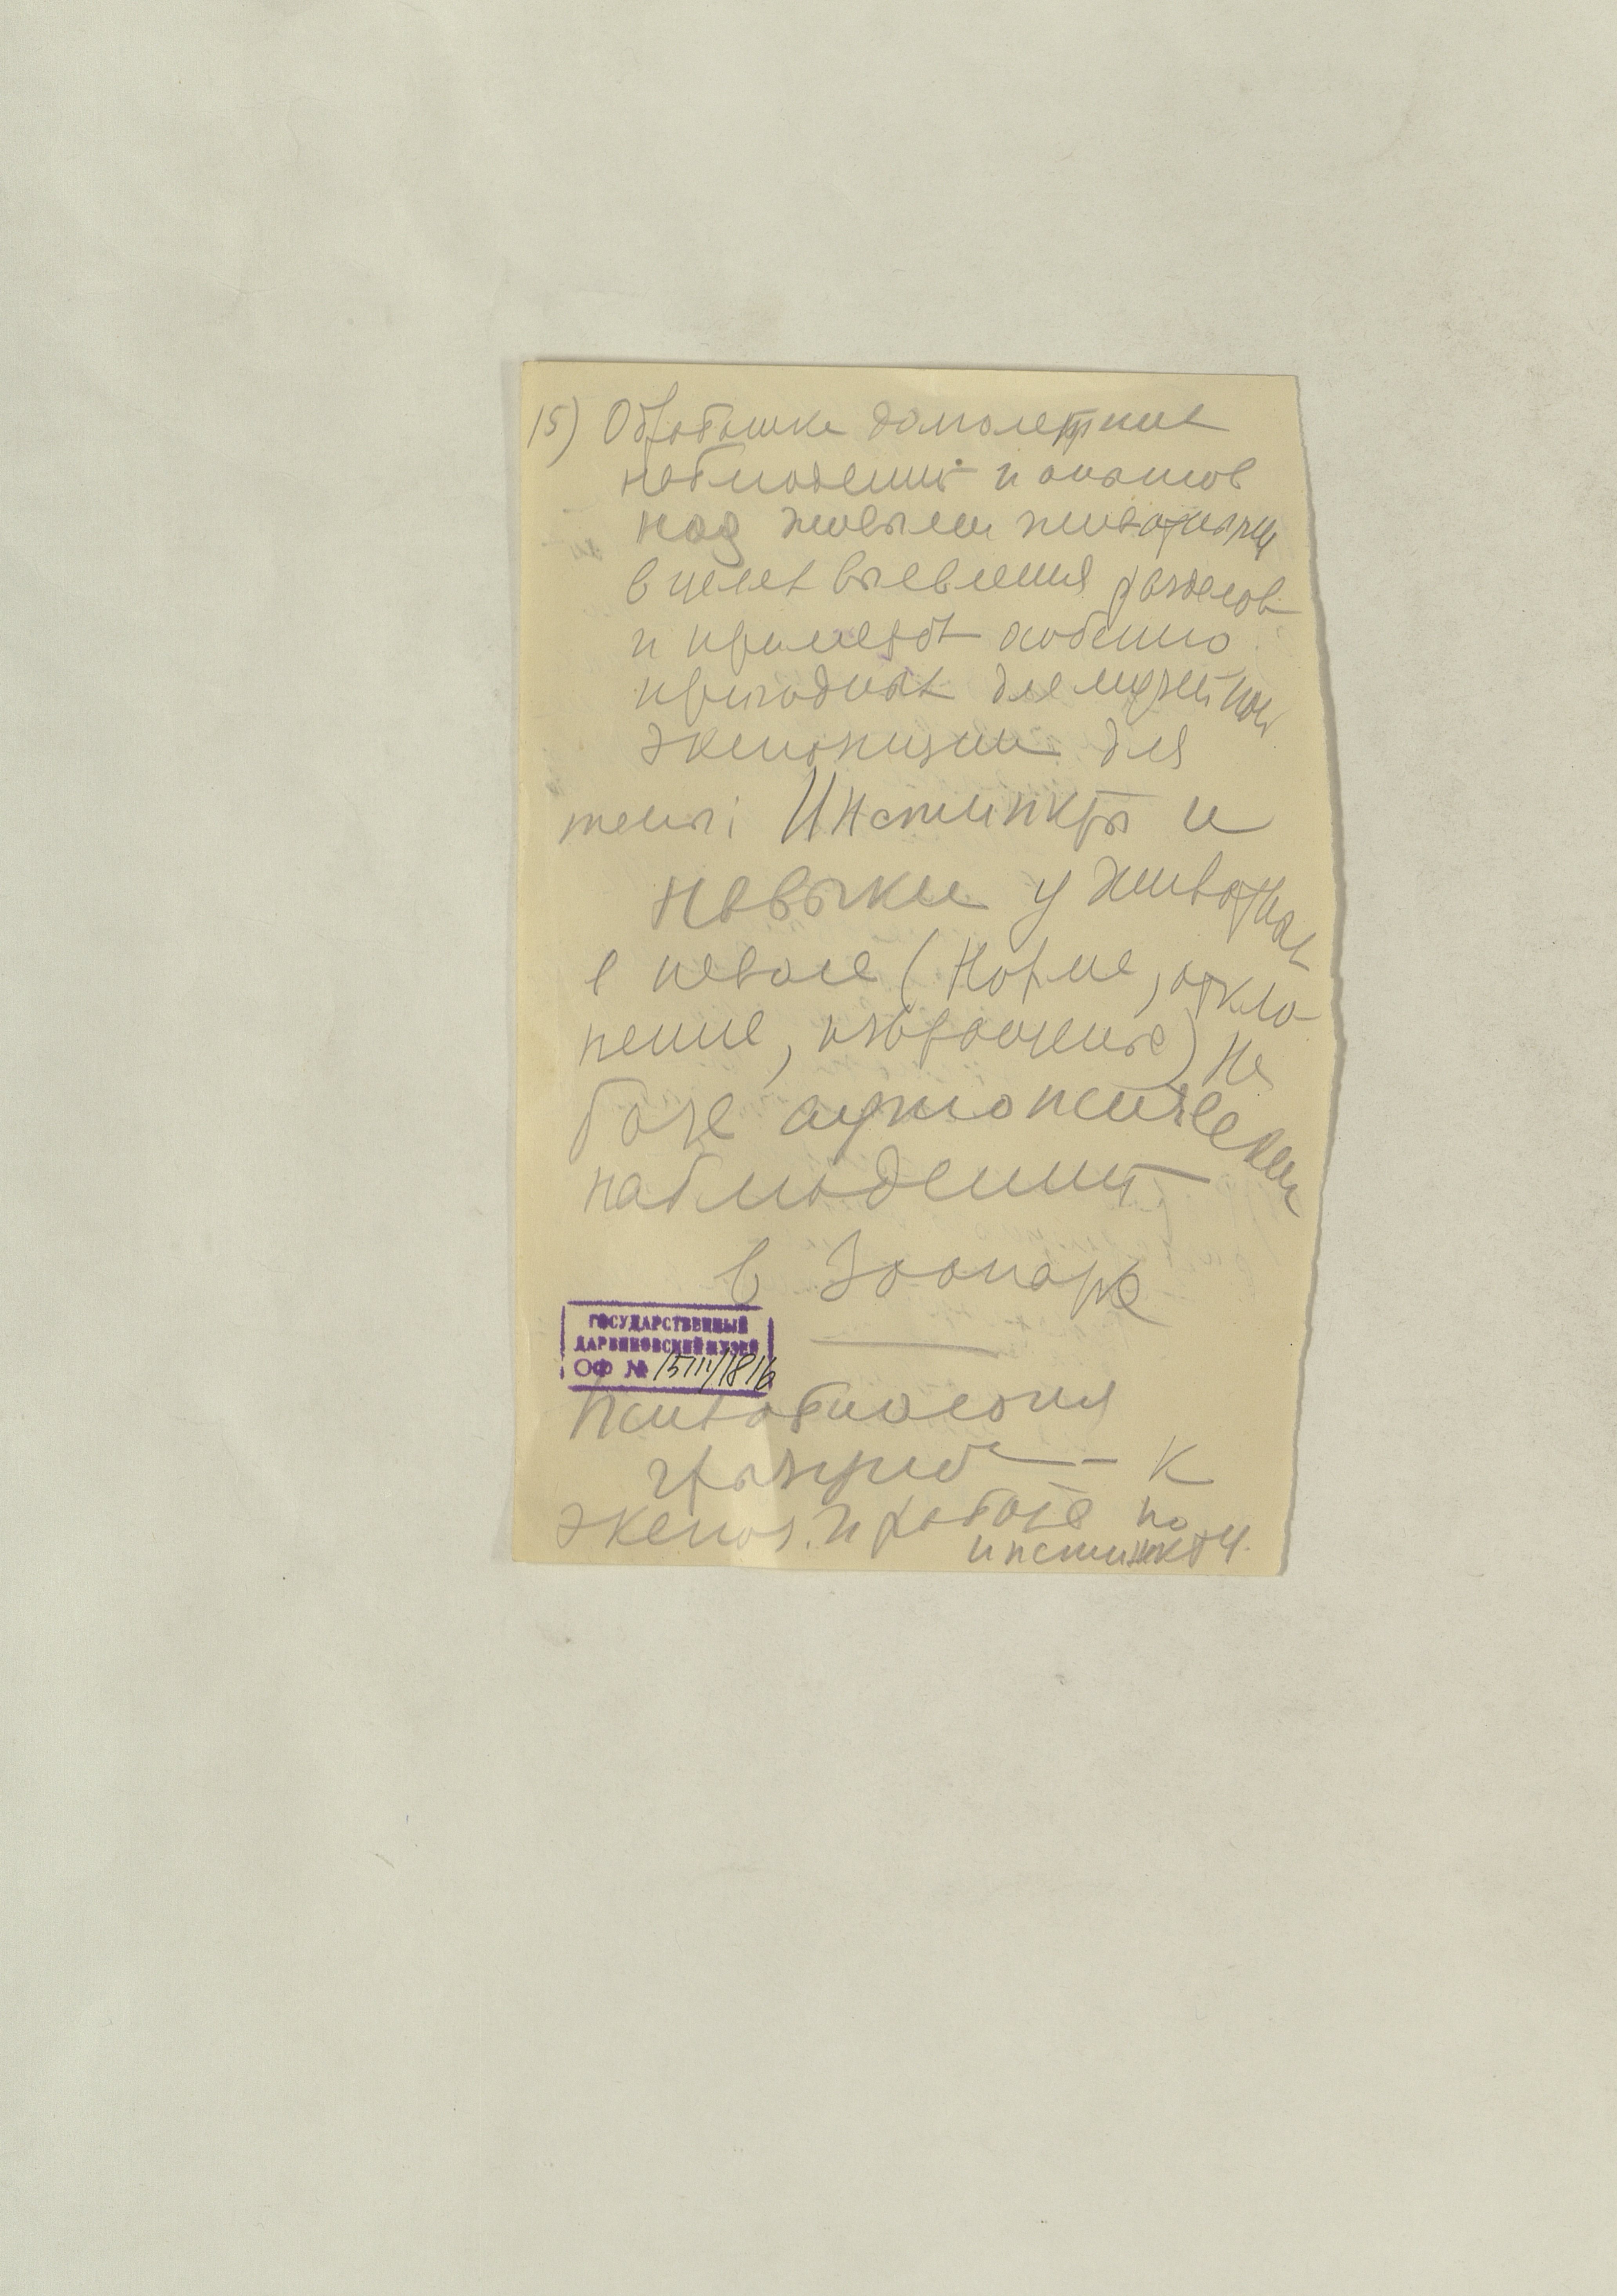 15) Обработка долголетних
наблюдений и опытов
над живыми животными
в целях выявления разделов
и примеров особенно
пригодных для музейной
экспозиции для
темы: Инстинкты и
навыки у животных
в неволе (Норма, откло-
нение, извращение) На
базе зоопсихических
наблюдений
в Зоопарке
ГОСУДАРСТВЕННЫЙ
ДАРВИНОВСКИЙ МУЗЕЙ
ОФ №
Психобиология
к
экспоз. и работе по
инстинкту.